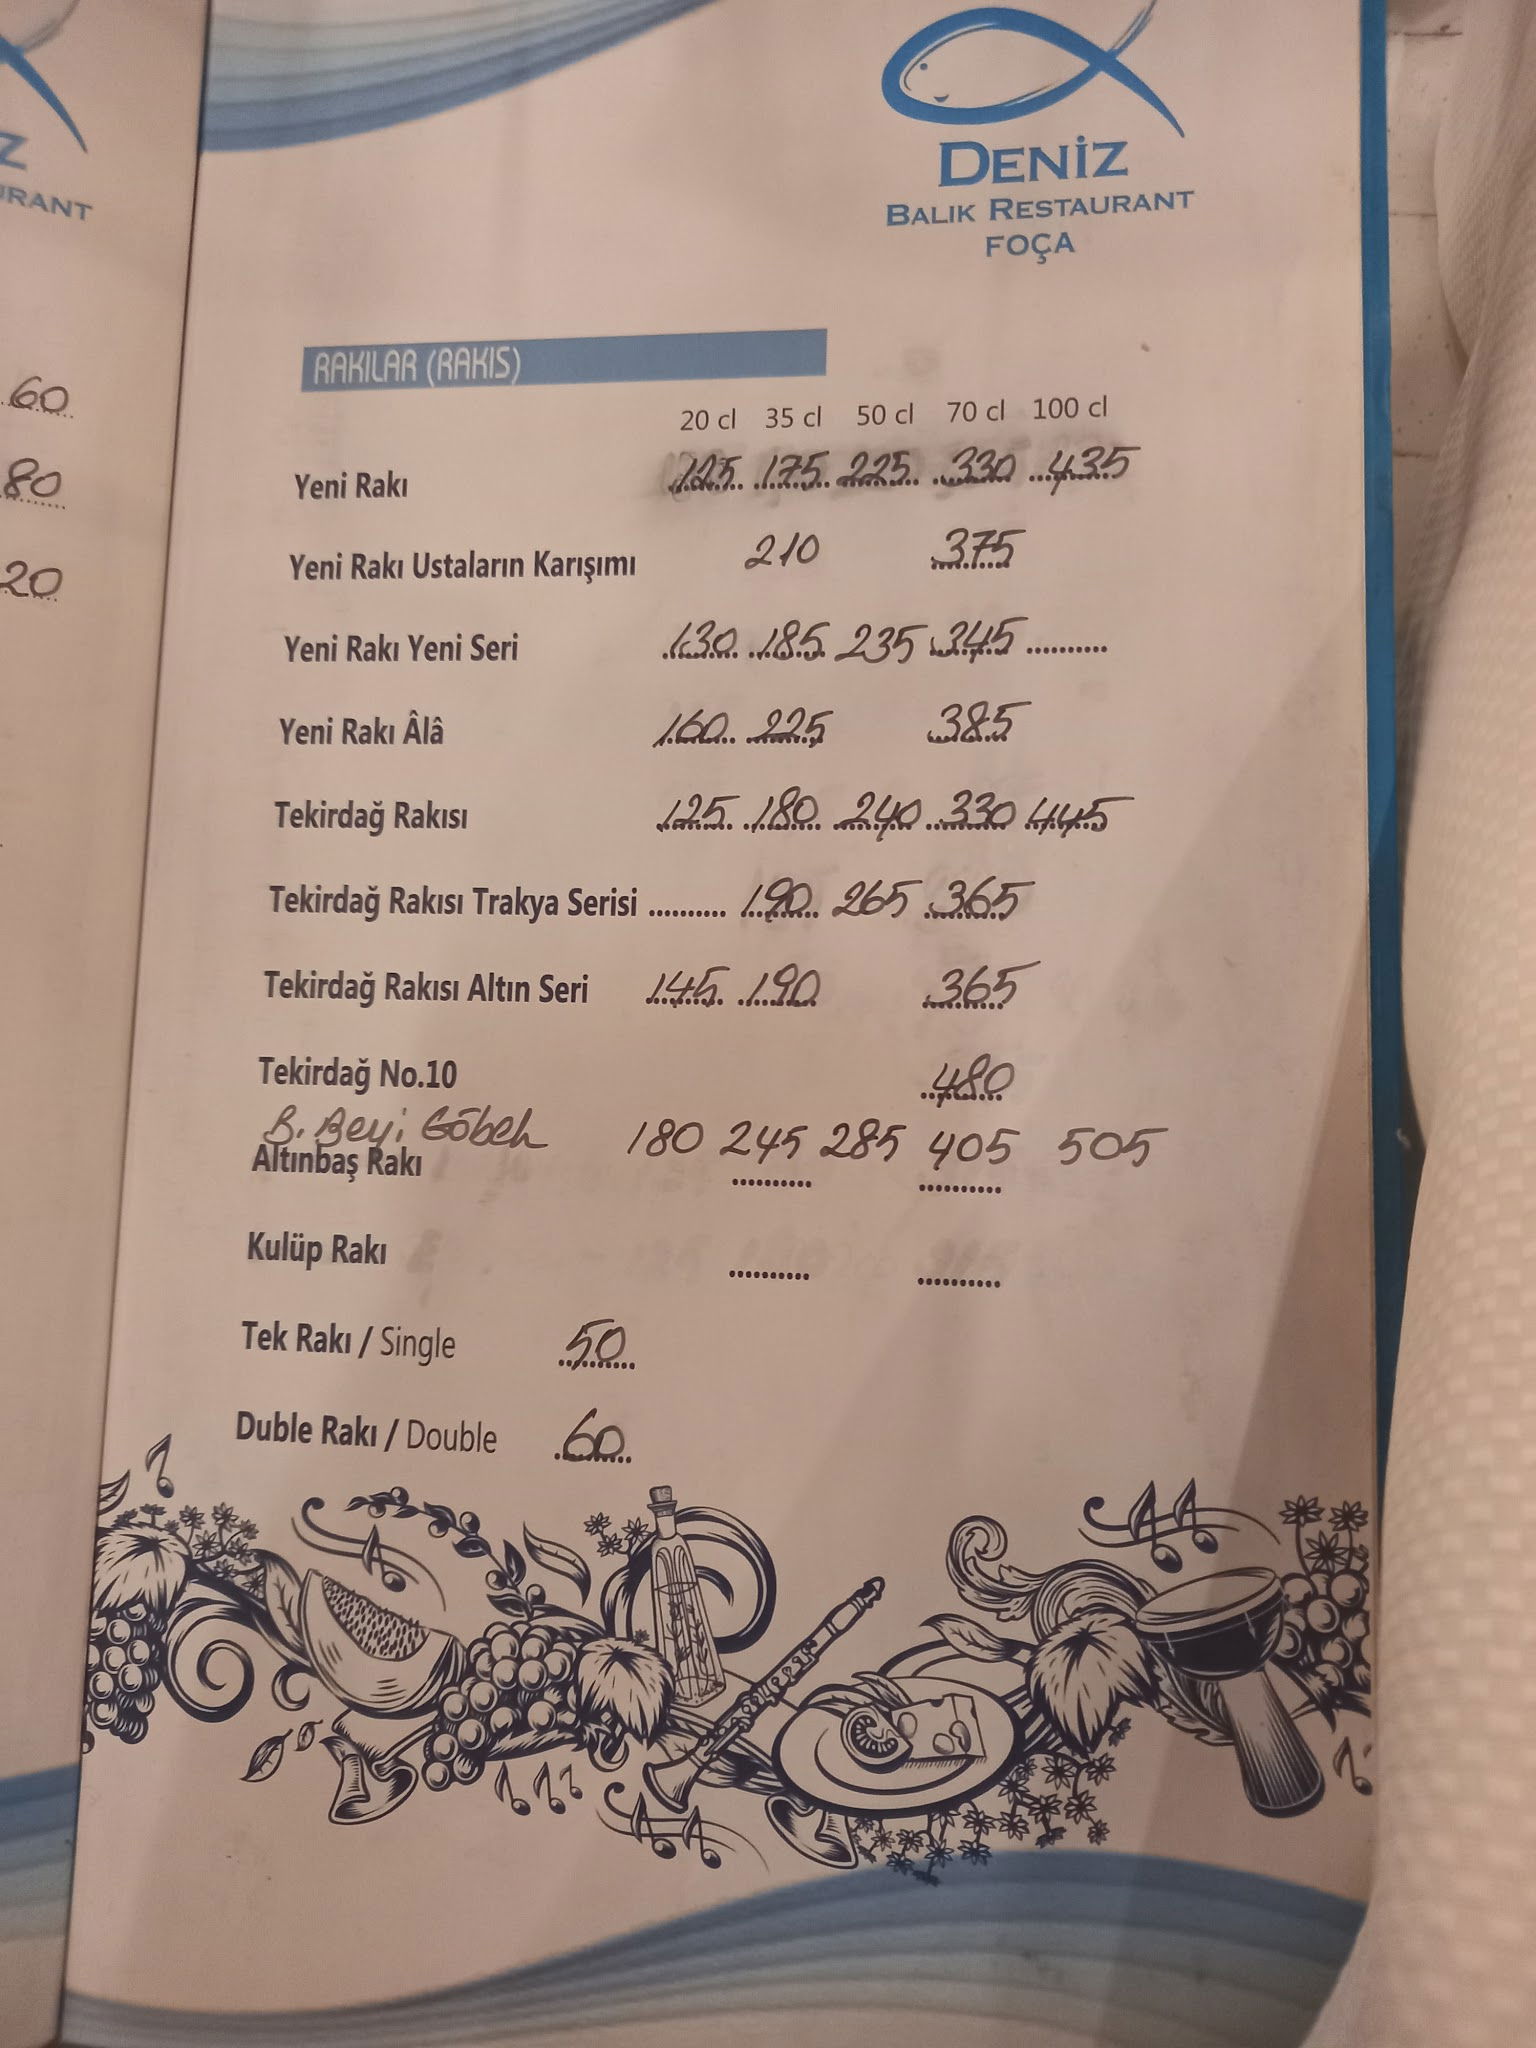 Z
URANT
60
80
20
DENİZ
BALIK RESTAURANT
FOÇA
RAKILAR (RAKIS)
20 cl 35 cl 50 cl 70 cl 100 cl
Yeni Rakı 125 175 225 330 435
Yeni Rakı Ustaların Karışımı 210 375
Yeni Rakı Yeni Seri 130 185 235 345 ..........
Yeni Rakı Âlâ 160 225 385
Tekirdağ Rakısı 125 180 240 330 445
Tekirdağ Rakısı Trakya Serisi .......... 190 265 365
Tekirdağ Rakısı Altın Seri 145 190 365
Tekirdağ No.10 480
B. Beyi Göbek 180 245 285 405 505
Altınbaş Rakı .......... ..........
Kulüp Rakı .......... ..........
Tek Rakı / Single 50
Duble Rakı / Double 60